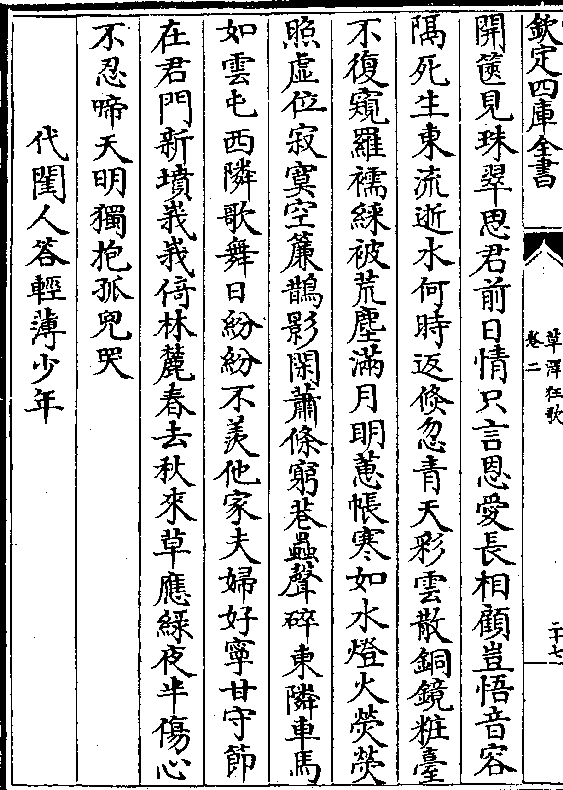 欽定四庫全書
草澤狂歌
卷二
二十七
開篋見珠翠思君前日情只言恩愛長相顧豈悟音容
隔死生東流逝水何時返倐忽青天彩雲散銅鏡粧臺
不復窺羅襦綵被荒塵滿月明蕙帳寒如水燈火熒熒
照虛位寂寞空簾鵲影閑蕭條窮巷蟲聲碎東隣車馬
如雲屯西隣歌舞日紛紛不羨他家夫婦好寧甘守節
在君門新墳峩峩倚林麓春去秋來草應緑夜半傷心
不忍啼天明獨抱孤兒哭
代閨人答輕薄少年